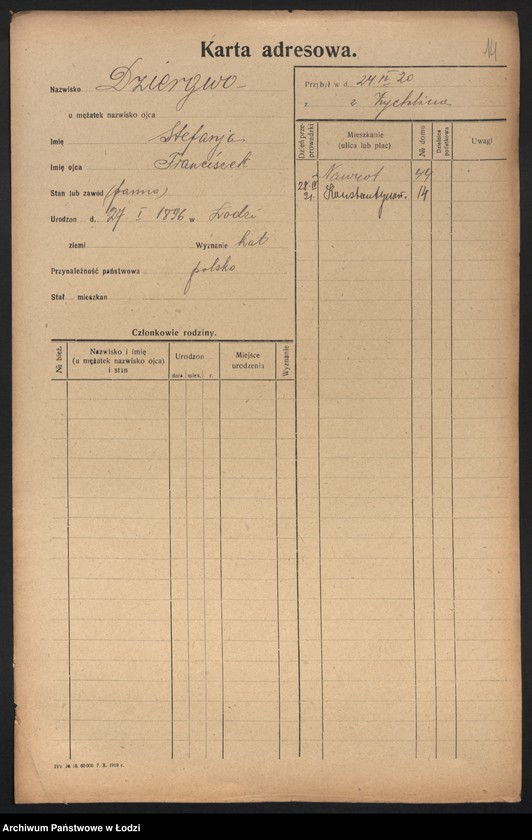 14
Karta adresowa.
Nazwisko Dziergwo
u mężatek nazwisko ojca
Imię Stefanja
Imię ojca Franciszek
Stan lub zawód (panna)
Urodzon d. 27 I 1896 w Łodzi
ziemi Wyznanie kat
Przynależność państwowa polska
Stał. mieszkan.
Przybył w d. 24 IV 20
z z Żychlina
Dzień przeprowadzki
Mieszkanie (ulica lub plac)
№ domu
Dzielnica podatkowa
Uwagi
Nawrot 44
28. IV 21. Konstantynow. 14
Członkowie rodziny.
№ bież.
Nazwisko i imię
(u mężatek nazwisko ojca)
i stan
Urodzon
dnia mies. r.
Miejsce urodzenia
Wyznanie
7. X. 1918 r.
Archiwum Państwowe w Łodzi